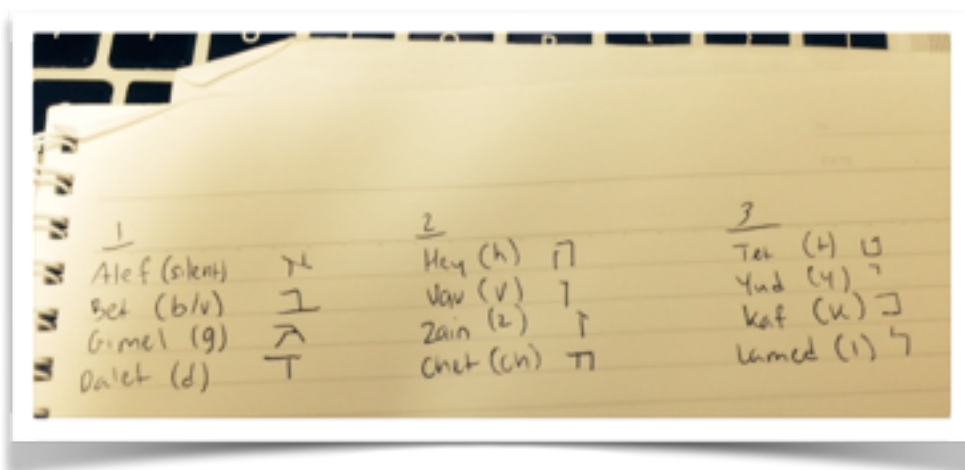 1
Alef (silent) א
Bet (b/v) ב
Gimel (g) ג
Dalet (d) ד
2
Hey (h) ה
Vav (v) ו
Zain (z) ז
Chet (ch) ח
3
Tet (t) ט
Yud (y) י
Kaf (k) כ
Lamed (l) ל